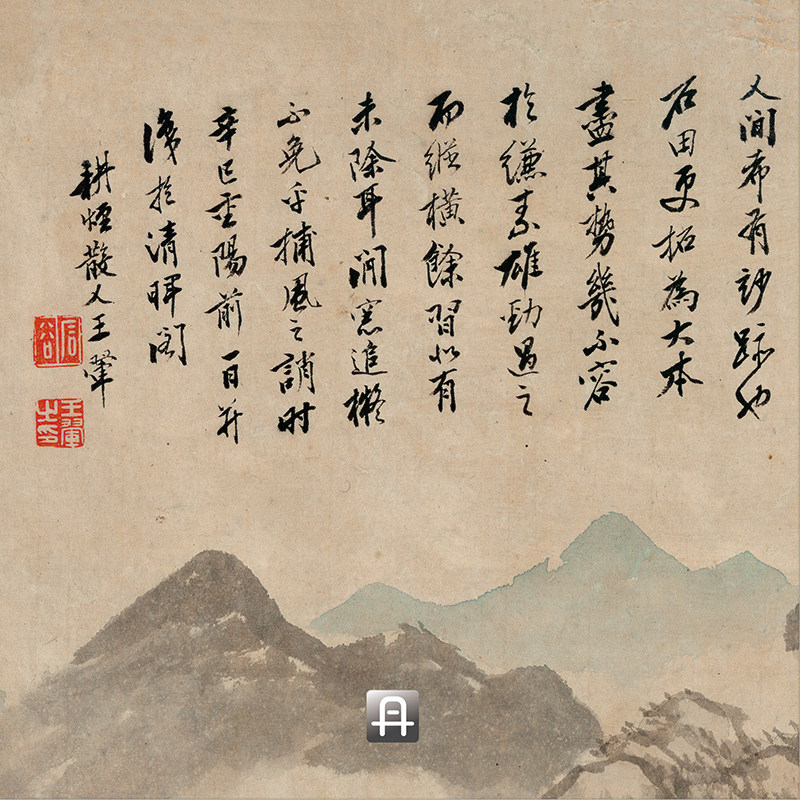 人間希有妙跡也
石田更拓為大本
盡其勢幾不容
於縑素雄勁過之
而縱橫餘習似有
未除耳閒窓追擬
不免乎捕風之誚時
辛巳重陽前一日并
識於清暉閣
耕煙散人王翬
石谷
王翬之印